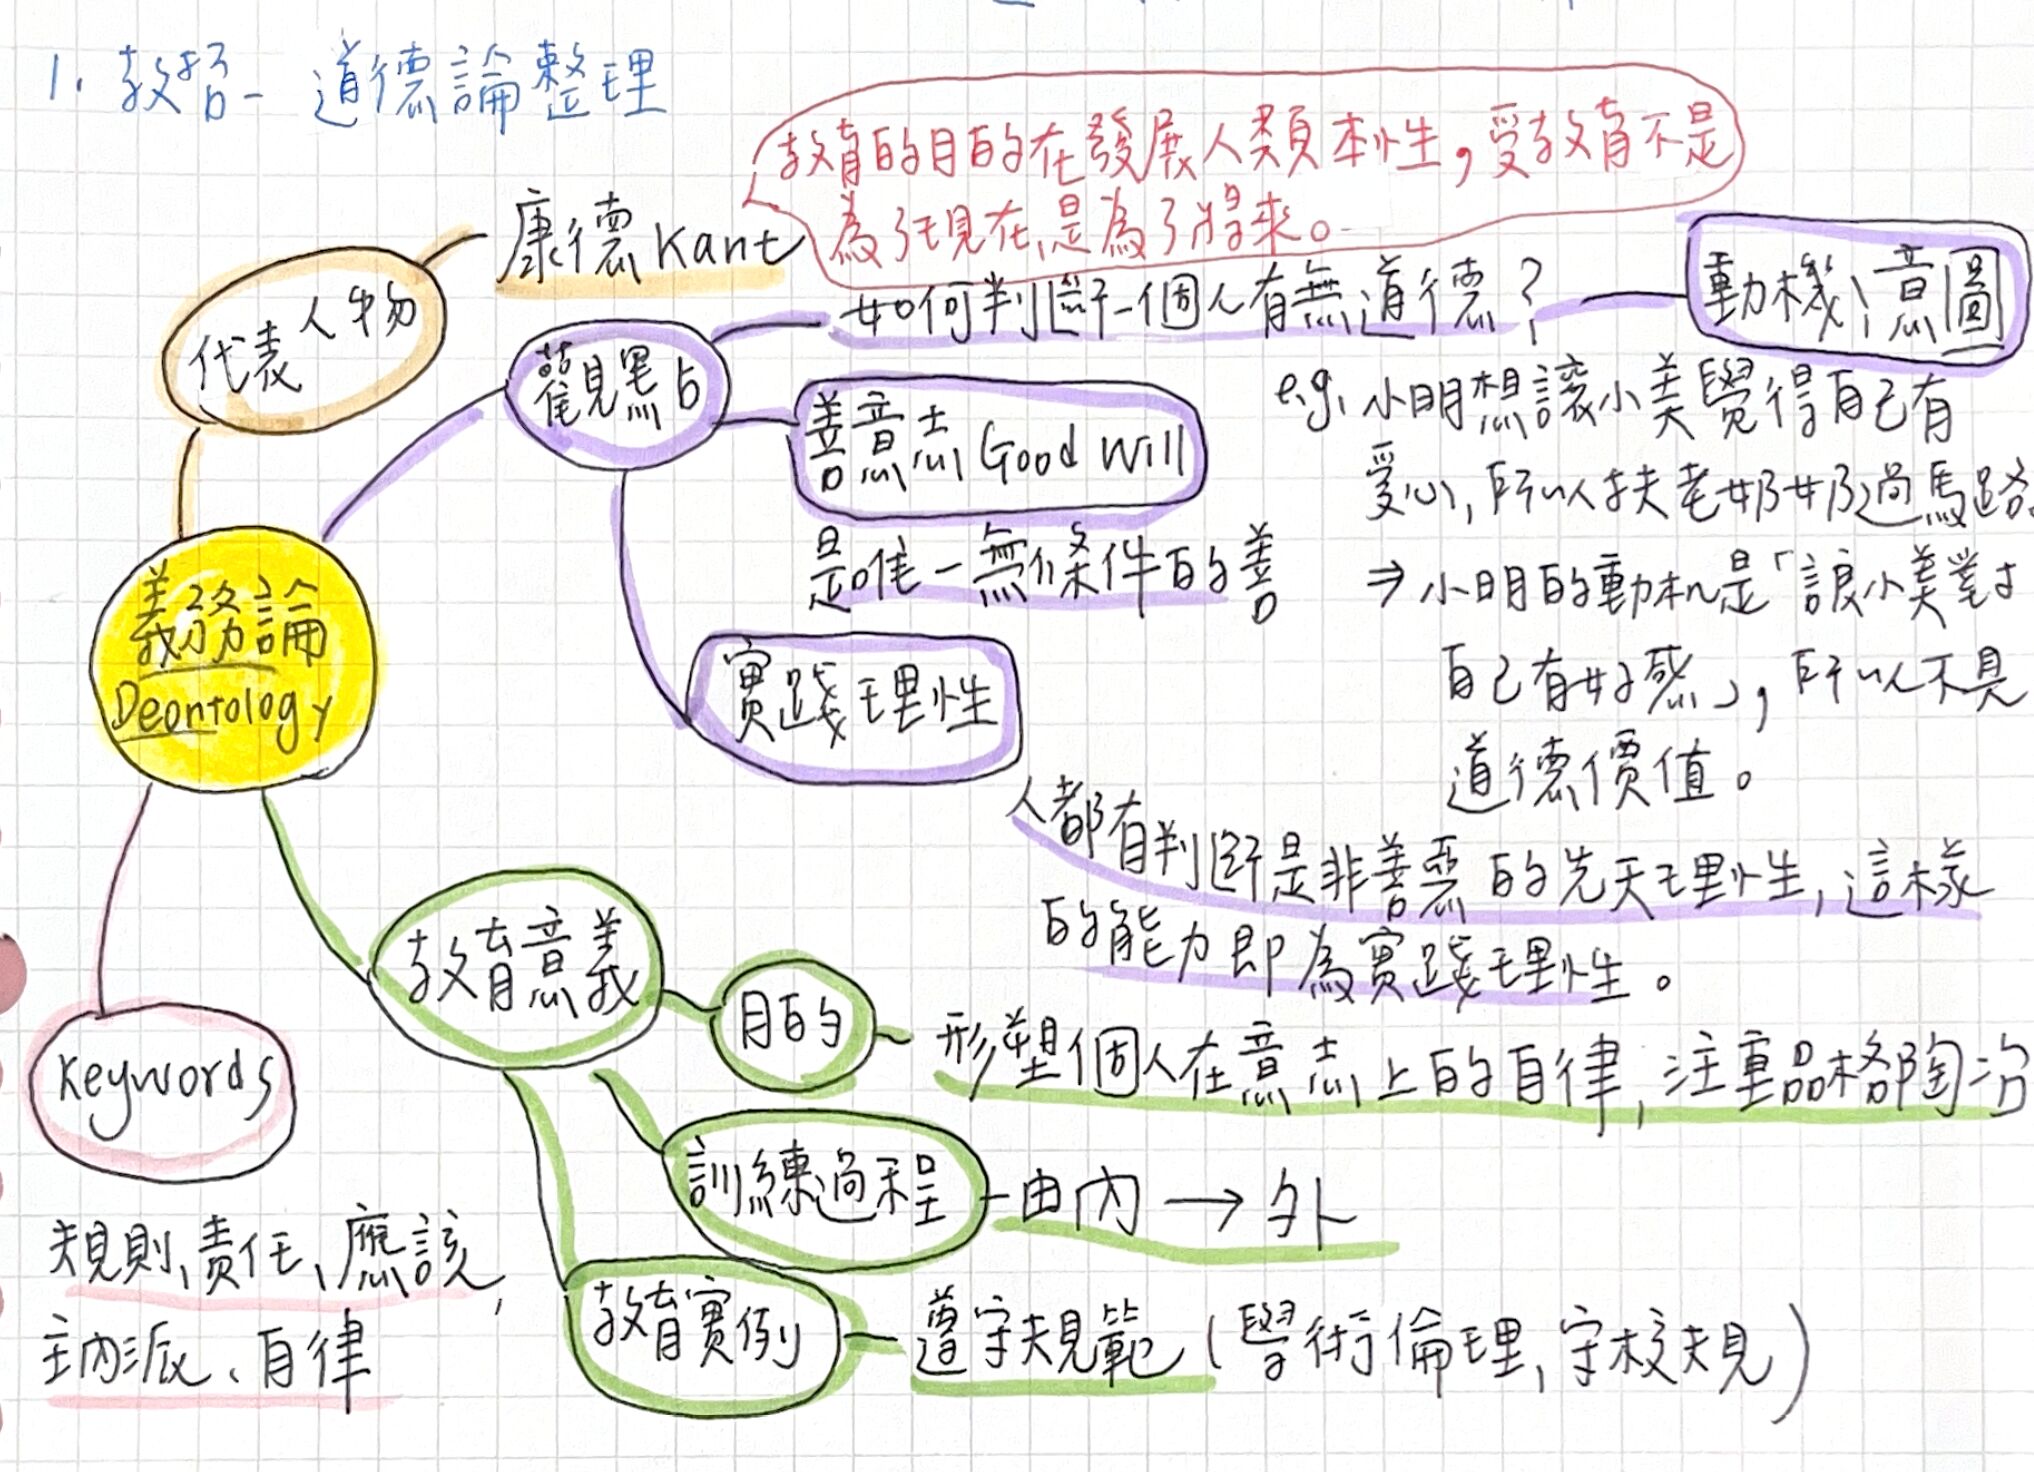 1. 教哲- 道德論整理
教育的目的在發展人類本性，受教育不是
為了現在，是為了將來。
康德Kant
代表人物
觀點
如何判斷一個人有無道德？
動機、意圖
e.g. 小明想讓小美覺得自己有
愛心，所以扶老奶奶過馬路。
⇒小明的動机是「讓小美對
自己有好感」，所以不具
道德價值。
善意志Good Will
是唯一無條件的善
實踐理性
人都有判斷是非善惡的先天理性，這樣
的能力即為實踐理性。
義務論
Deontology
教育意義
目的
形塑個人在意志上的自律，注重品格陶冶
訓練過程
由內→外
教育實例
遵守規範(學術倫理，守校規)
Keywords
規則、責任、應該、
主內派、自律